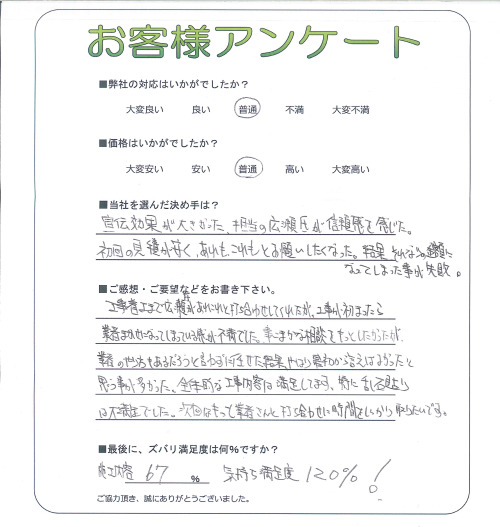 お客様アンケート
■弊社の対応はいかがでしたか?
大変良い 良い 普通 不満 大変不満
■価格はいかがでしたか?
大変安い 安い 普通 高い 大変高い
■当社を選んだ決め手は?
宣伝効果が大きかった、担当の広瀬氏が信頼感を感じた。
初回の見積が安く、あれもこれもとお願いしたくなった。結果それなりの金額に
なってしまった事が失敗。
■ご感想・ご要望などをお書き下さい。
工事着工まで広瀬さんがあれこれと打ち合わせしてくれたが、工事が初まったら
業者まかせになってしまっている感が不満でした。事こまかな相談をもっとしたかったが、
業者のやり方もあるだろうと言わずに任せた結果やはり最初から言えばよかったと
思う事が多かった。全体的な工事内容は満足してます。特に
は不満足でした。次回はもっと業者さんと打ち合わせに時間をしっかり取りたいです。
■最後に、ズバリ満足度は何%ですか?
施工内容 67 % 気持ち満足度 120%!
ご協力頂き、誠にありがとうございました。